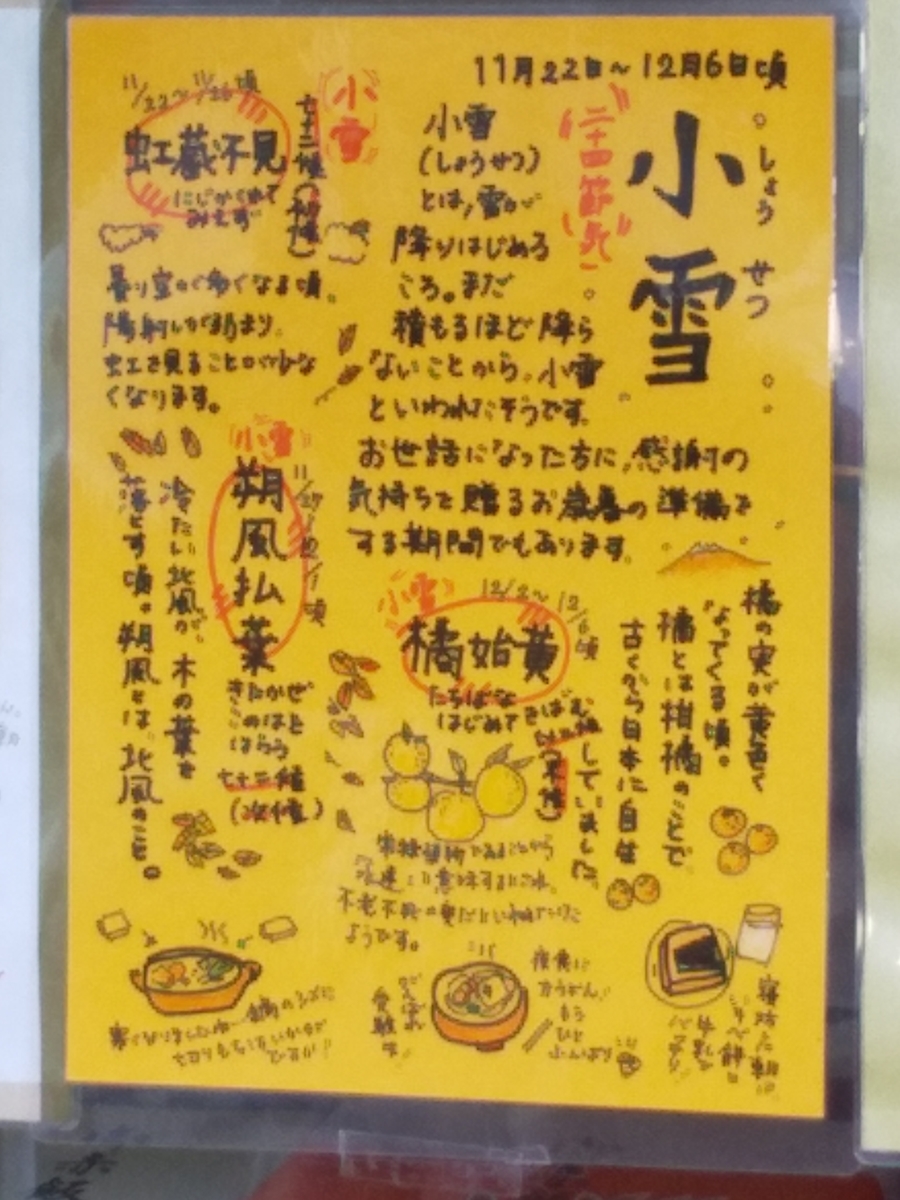 11月22日～12月6日頃
小雪
しょうせつ
二十四節気
小雪
(しょうせつ)
とは、雪が
降りはじめる
ころ。まだ
積もるほど降ら
ないことから、小雪
といわれたそうです。
お世話になった方に、感謝の
気持ちを贈るお歳暮の準備を
する期間でもあります。
小雪
七十二候(初候)
11/22～
頃
虹蔵不見
にじかくれて
みえず
曇り空が多くなる頃。
陽射しが弱まり、
虹を見ることが少な
くなります。
小雪
朔風払葉
11/27～12/1頃
きたかぜ
このはを
はらう
七十二候
(次候)
冷たい北風が、木の葉を
落とす頃。朔風とは、北風のこと。
小雪
12/2～12/6頃
橘始黄
たちばな
はじめてきばむ
七十二候(末候)
橘の実が黄色く
なってくる頃。
橘とは柑橘のことで
古くから日本に自生
していました。
常緑植物であることから
「永遠」を意味するといわれ、
不老不死の実だといわれていた
ようです。
寒くなりましたね～鍋の
がんばれ
受験生
夜食に
おうどん
もう
ひと
ふんばり
寝坊した朝は
牛乳